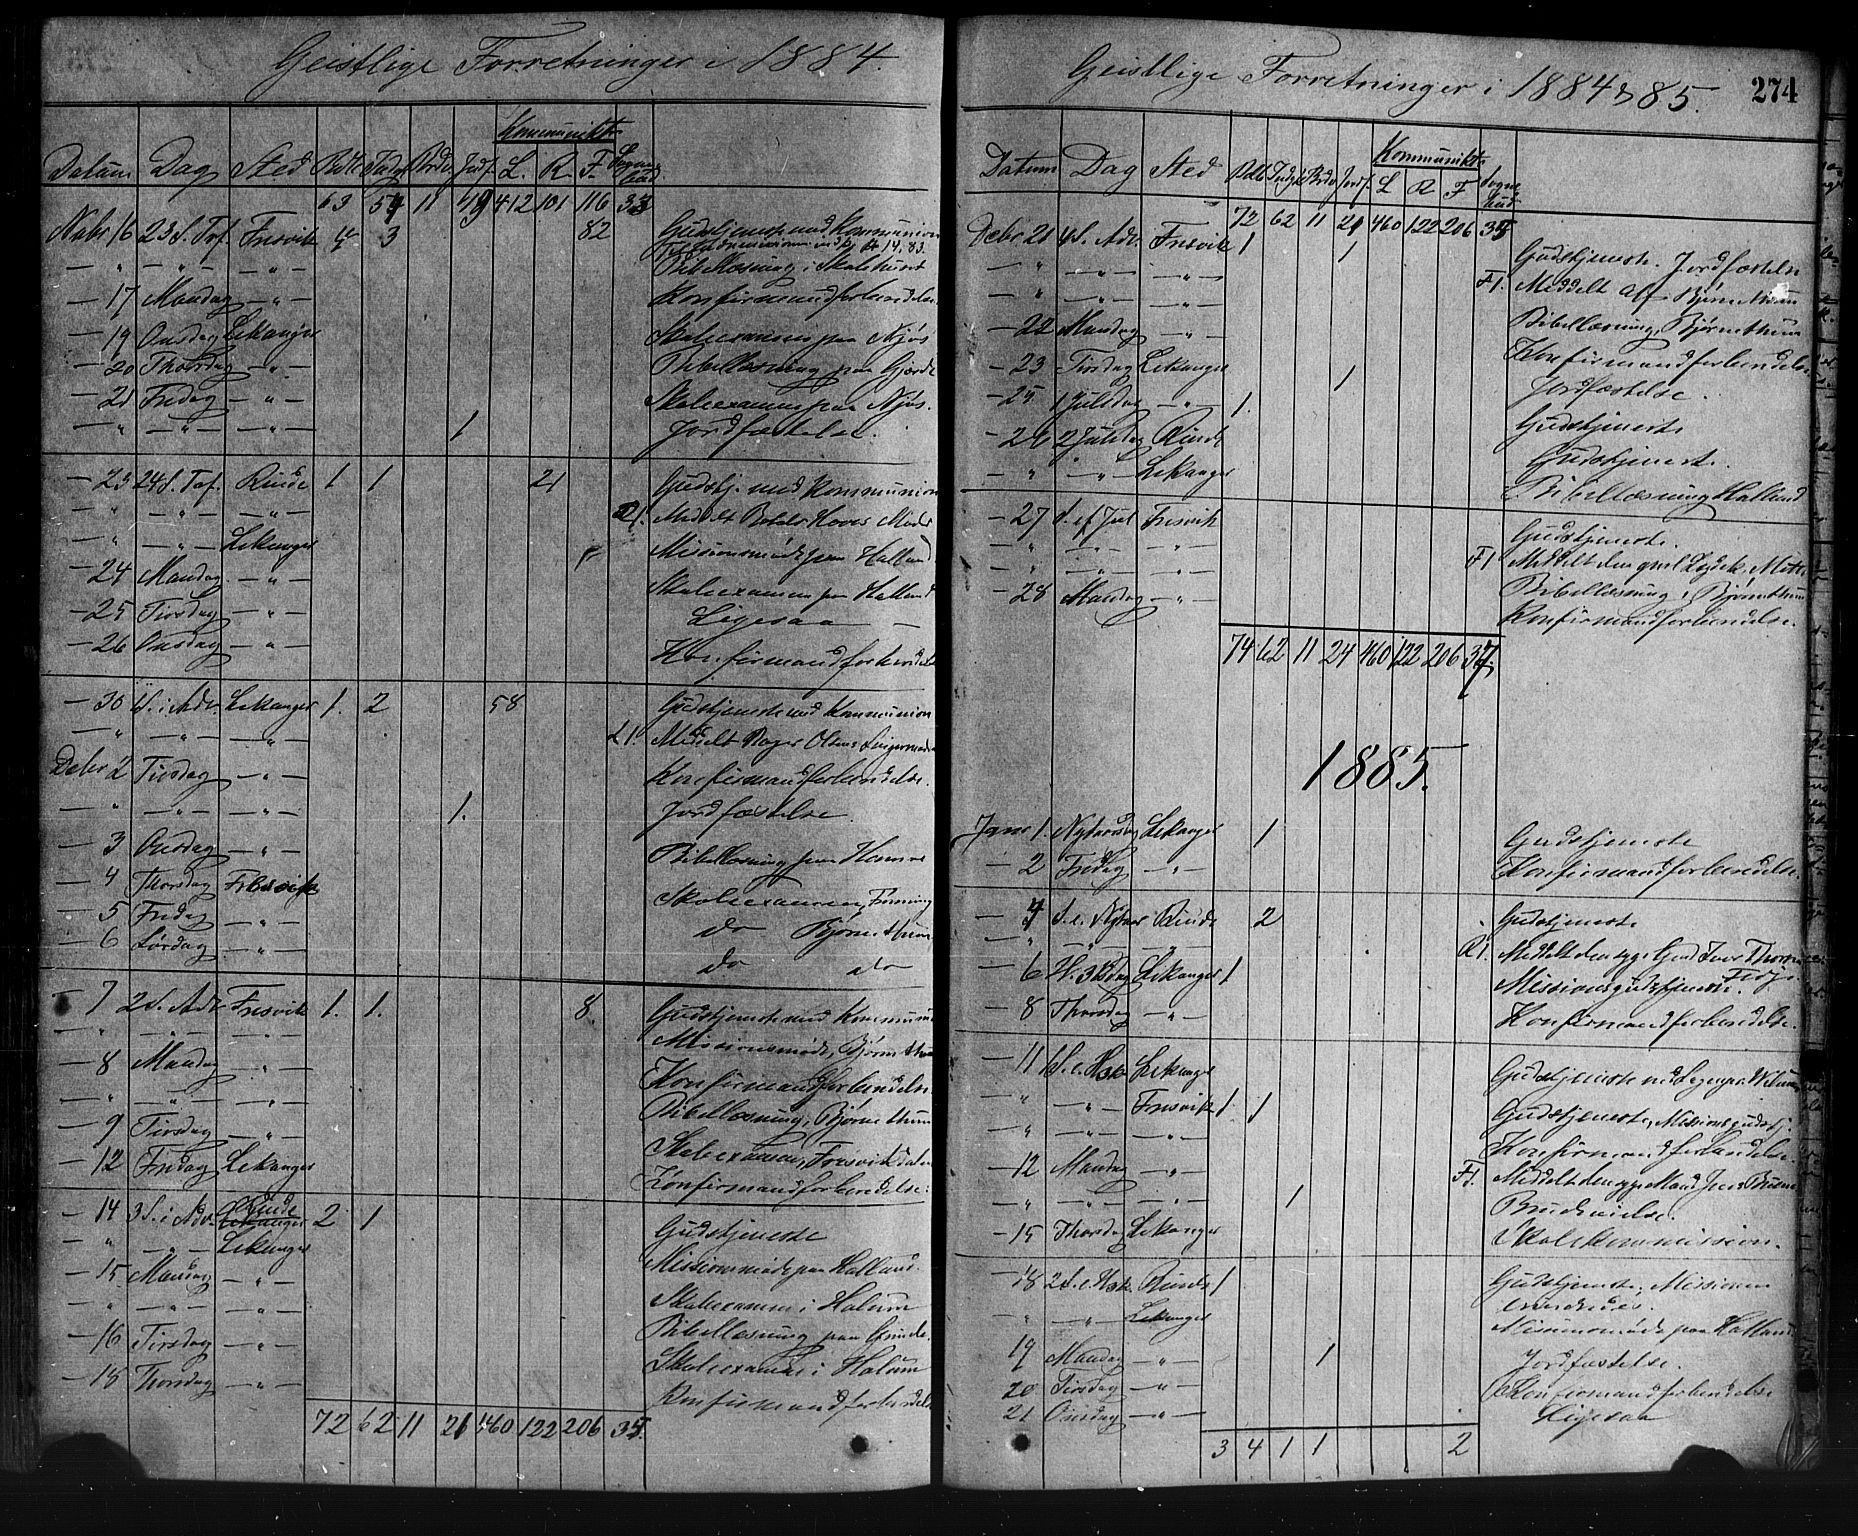 Geistlige Forretninger i 1884.
Kommunikt.
Datum Dag Sted Vi L. R. F. Sognebud
63 54 11 19 412 101 116 33
Nobr 16 23 S. Tref. Fresvik 4 3 82 Gudstjeneste med Kommunion
— " — " — " — Bibellæsning i Skolehuset
— 17 Mandag — " — Konfirmandforberedelse
— 19 Onsdag Lekanger Skoleexamen paa Njøs
— 20 Thorsdag — " — Bibellæsning paa Gjerde
— 21 Fredag — " — Skoleexamen paa Njøs.
" — " — — " — 1 Jordfæstelse.
— 23 24 S. Tref. Rinde 1 1 21 Gudstj. med Kommunion
" — " — — " — Meddelt
" — " — Lekanger Missionsmøde paa Hatland
— 24 Mandag — " — Skoleexamen paa Hatland
— 25 Tirsdag — " — Ligesaa —
— 26 Onsdag — " — Konfirmandforberedelse
— 30 1 S. i Adv. Lekanger 1. 2 58 Gudstjeneste med Kommunion
" — " — — " — L 1. Meddelt
Debr 2 Tirsdag — " — Konfirmandforberedelse.
" — " — — " — 1. Jordfæstelse.
— 3 Onsdag — " — Bibellæsning paa
— 4 Thorsdag Fresvik Skoleexamen,
— 5 Fredag — " — do Bjørnethun
— 6 Lørdag — " — do do
— 7 2 S. Adv. Fresvik 1. 1. 8 Gudstjeneste med Kommunion
" — " — — " — Missionsmøde, Bjørnethun
— 8 Mandag — " — Konfirmandforberedelse
" — " — — " — Bibellæsning, Bjørnethun
— 9 Tirsdag — " — Skoleexamen, Fresvikdalen
— 12 Fredag Lekanger Konfirmandforberedelse.
— 14 3 S. i Adv. Rinde 2 1 Gudstjeneste
" — " — Lekanger Missionsmøde paa Hatland.
— 15 Mandag — " — Skoleexamen i Halum
" — " — — " — Bibellæsning paa Grinde.
— 16 Tirsdag — " — Skoleexamen i Halum
— 18 Thorsdag — " — Konfirmandforberedelse
72 62 11 21 460 122 206 35.
Geistlige Forretninger i 1884 & 85.
274
Kommunikt.
Datum Dag Sted Jordf. L R F Sognebud
72 62 11 21 460 122 206 35
Debr. 21 4 S. Adv. Fresvik 1 1 Gudstjeneste. Jordfæstelse
" — " — — " — F 1. Meddelt af Bjørnethun
" — " — — " — Bibellæsning, Bjørnethun
— 22 Mandag — " — Konfirmandforberedelse
— 23 Tirsdag Lekanger 1 Jordfæstelse.
— 25 1 Juledag — " — 1. Gudstjeneste
— 26 2 Juledag Rinde Gudstjeneste.
" — " — Lekanger Bibellæsning Hatland
— 27 S. ef Jul Fresvik Gudstjeneste.
" — " — — " — F 1 Meddelt den
" — " — — " — Bibellæsning, Bjørnethun
— 28 Mandag — " — Konfirmandforberedelse.
74 62 11 24 460 122 206 37.
1885.
Janr 1. Nytaarsdag Lekanger 1 Gudstjeneste
— 2 Fredag — " — Konfirmandforberedelse.
— 4 S. e. Nytaar Rinde 2 Gudstjeneste
" — " — — " — R 1. Meddelt den syge
— 6 H. 3 K. dag Lekanger 1 Missionsgudstjeneste.
— 8 Thorsdag — " — Konfirmandforberedelse.
— 11 1 S. e. H3K Lekanger Gudstjeneste ved
" — " — Fresvik 1 1 Gudstjeneste, Missionsgudstj.
" — " — — " — Konfirmandforberedelse.
— 12 Mandag — " — F 1. Meddelt den syge Mand
" — " — — " — 1 Brudevielse.
— 15 Thorsdag Lekanger Skolekommission.
— 18 2 S. e. H3K. Rinde 1 Gudstjeneste; Missionen
" — " — Lekanger Missionsmøde paa Hatland
— 19 Mandag — " — 1 Jordfæstelse.
— 20 Tirsdag — " — Konfirmandforberedelse
— 21 Onsdag — " — Ligesaa
3 4 1 1 2